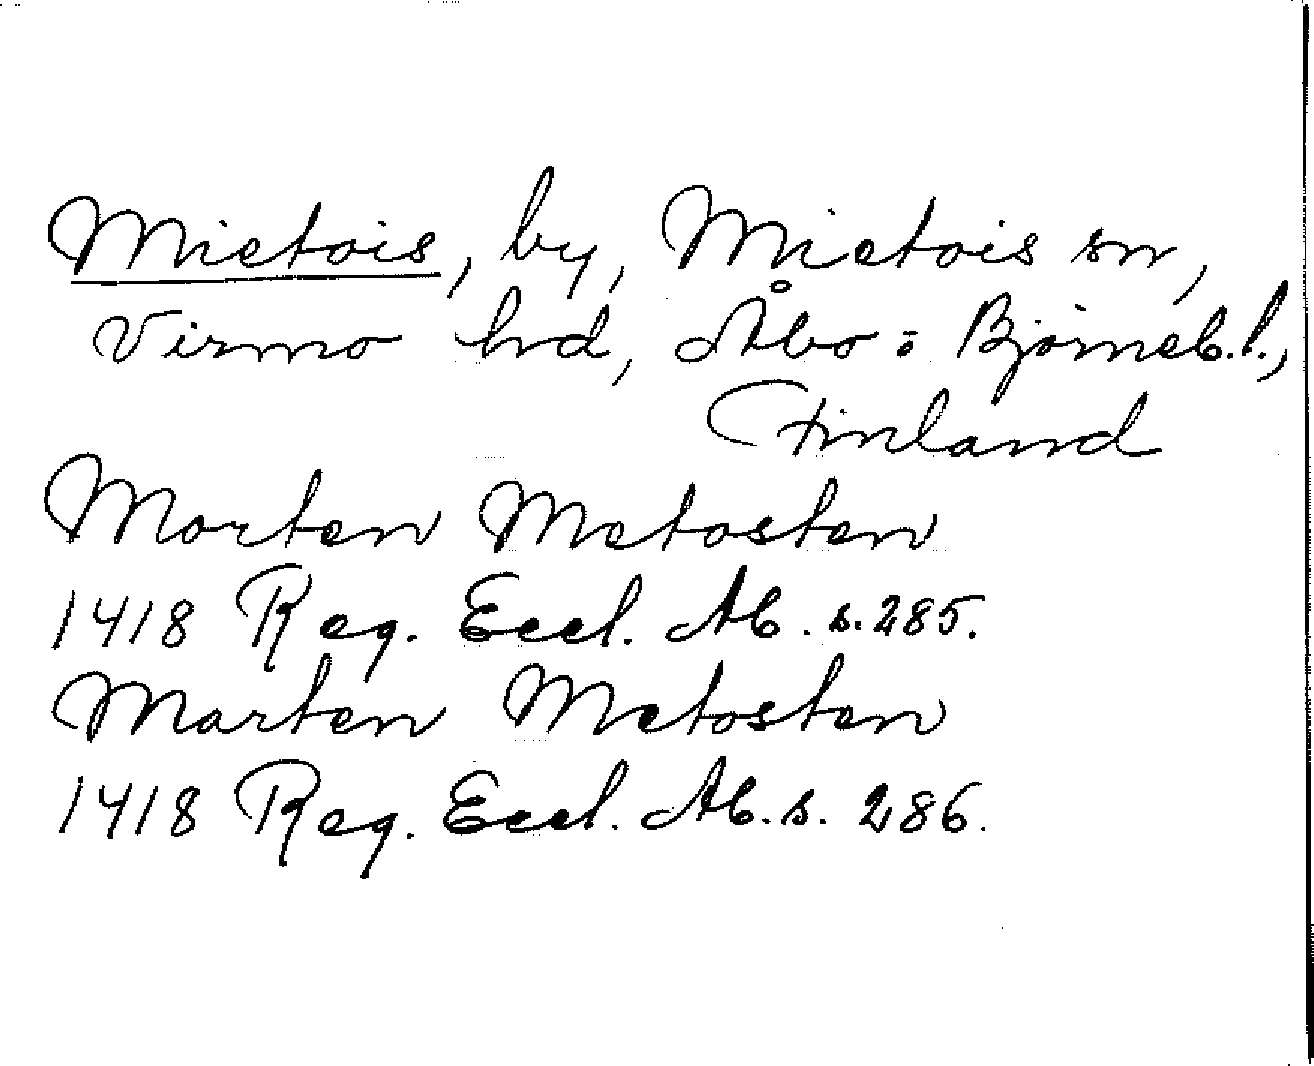 Mietois, by, Mietois sn,
Virmo hd, Åbo = Björneb. l.,
Finland
Morten Metosten
1418 Reg. Eccl. Ab. s. 285.
Marten Metosten
1418 Reg. Eccl. Ab. s. 286.